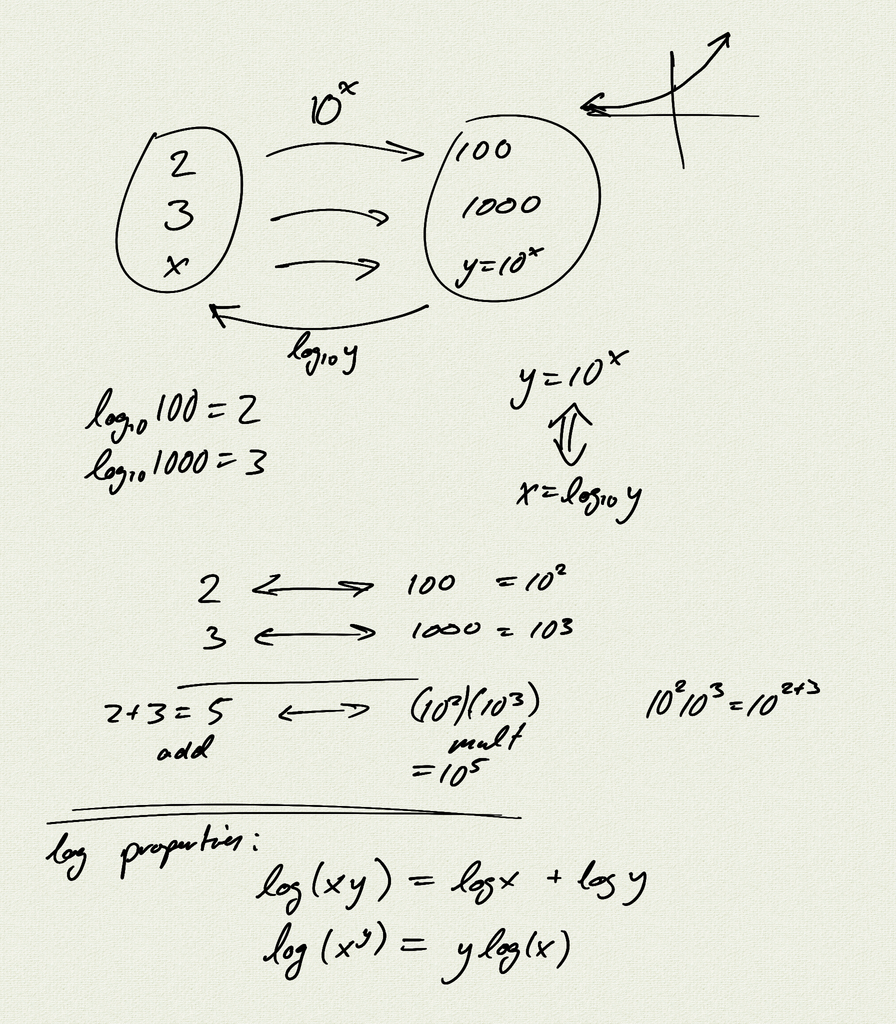 10^x
2 100
3 1000
x y=10^x
log₁₀y
log₁₀100=2
log₁₀1000=3
y=10^x
x=log₁₀y
2 100 =10²
3 1000 = 10³
2+3=5 (10²)(10³) 10²10³=10^{2+3}
add mult
=10⁵
log properties:
log(xy) = logx + logy
log(x^y) = ylog(x)